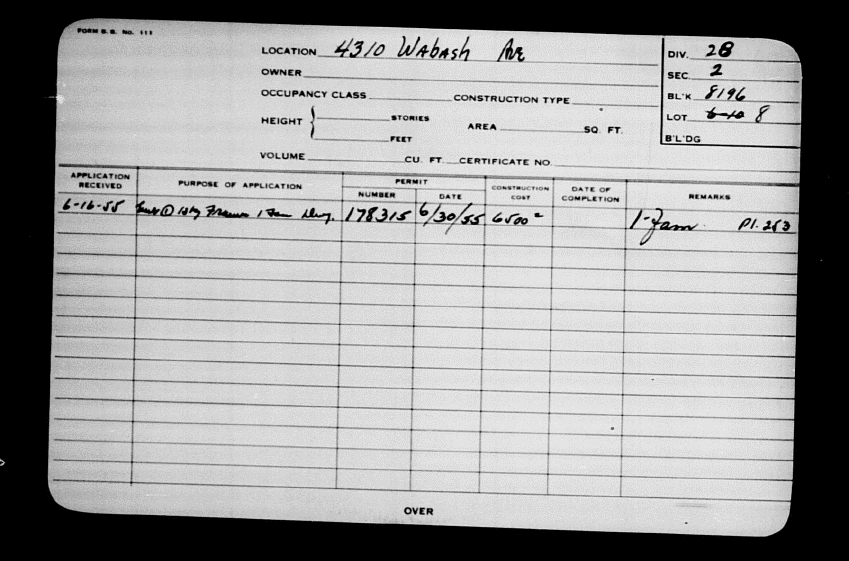 FORM B. B. No. 111
LOCATION 4310 Wabash Ave
OWNER
OCCUPANCY CLASS CONSTRUCTION TYPE
HEIGHT { STORIES
FEET
AREA SQ. FT.
VOLUME CU. FT. CERTIFICATE NO.
DIV. 28
SEC. 2
BL'K 8196
LOT 8
B'L'DG
APPLICATION RECEIVED PURPOSE OF APPLICATION PERMIT NUMBER DATE CONSTRUCTION COST DATE OF COMPLETION REMARKS
6-16-55 1 sty Frame 1 Fam Dwg. 178315 6/30/55 6500 1-Fam. Pl. 253
OVER